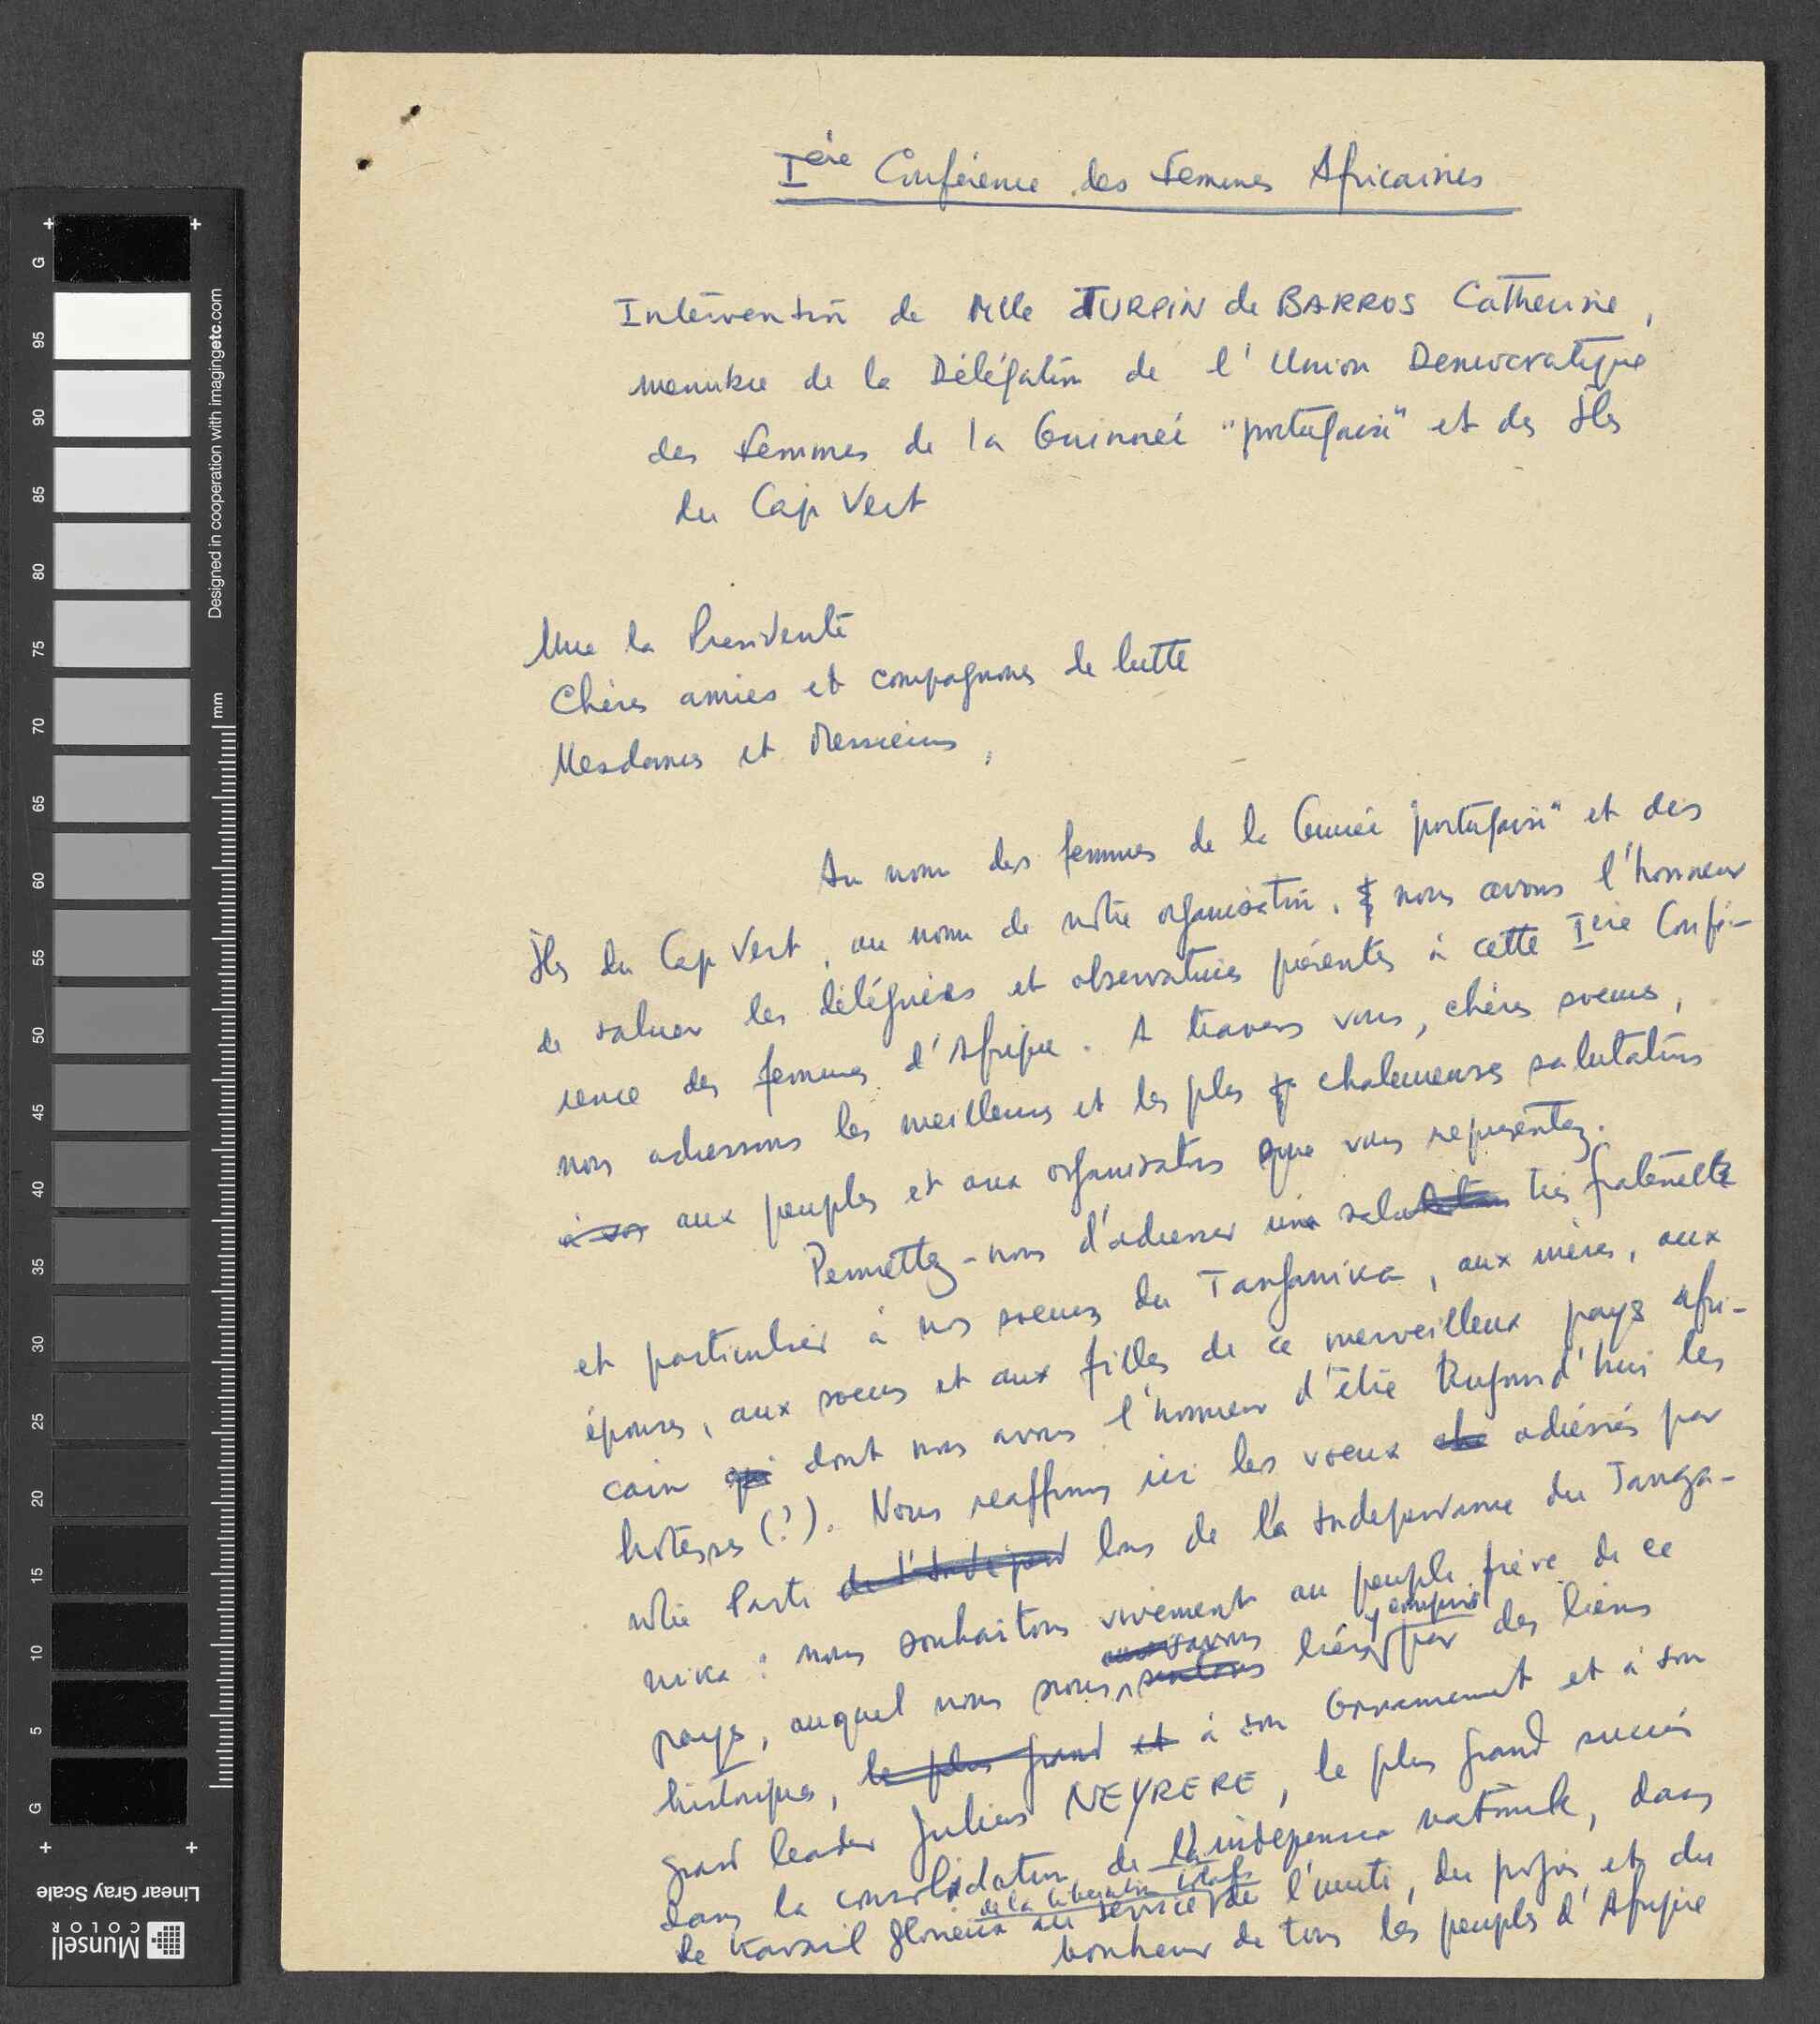 Ière Conférence des Femmes Africaines
Intervention de Mlle TURPIN de BARROS Catherine,
membre de la Délégation de l'Union Democratique
des Femmes de la Guinnée "portugaise" et des Iles
du Cap Vert
Mme la Presidente
Chères amies et compagnons de lutte
Mesdames et Messieurs,
Au nom des femmes de la Guinée "portugaise" et des
Iles du Cap Vert, au nom de notre organisation, nous avons l'honneur
de saluer les déléguées et observatrices présentes à cette Ière Confé-
rence des femmes d'Afrique. A travers vous, chères soeurs,
nous adressons les meilleurs et les plus chaleureuses salutations
aux peuples et aux organisations que vous representez.
Permettez-nous d'adresser un salut très fraternelle
et particulier à nos soeurs du Tanganika, aux mères, aux
épouses, aux soeurs et aux filles de ce merveilleux pays afri-
cain qui dont nous avons l'honneur d'être Aujourd'hui les
hotesses (?). Nous reaffirmons ici les voeux adressés par
notre Parti de l'Indepen lors de la Independance du Tanga-
nika : nous souhaitons vivement au peuple frère de ce
pays, auquel nous nous savons sentons liées, y compris par des liens
historiques, le plus grand et à son Gouvernement et à son
grand leader Julius NEYRERE, le plus grand succès
dans la consolidation de l'independance nationale, dans
le travail glorieux au service de la liberation totale de l'unité, du progrès et du
bonheur de tous les peuples d'Afrique
Designed in cooperation with imagingetc.com
mm
G
95
90
85
80
75
70
65
60
55
50
45
40
35
30
25
20
15
10
5
G
Linear Gray Scale
Munsell
COLOR